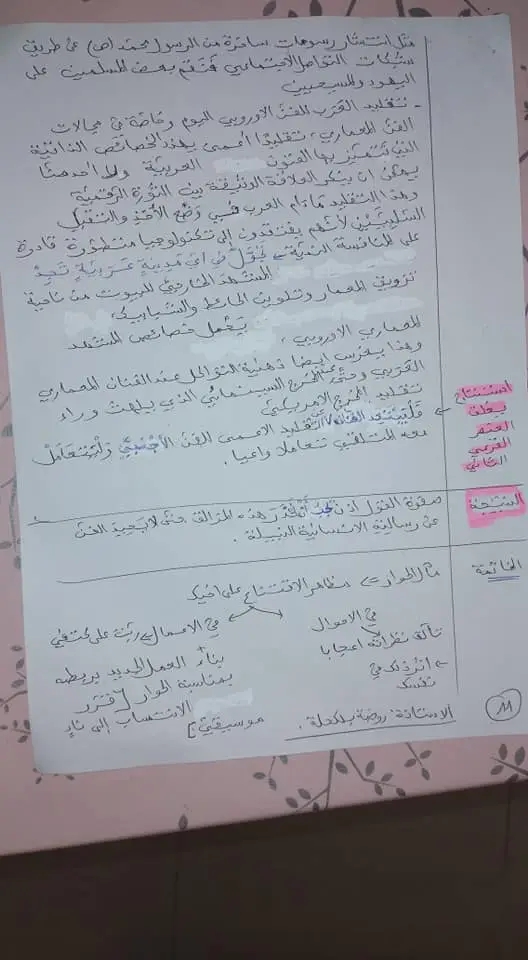 مثل انتشار رسومات ساخرة من الرسول محمد (ص) عن طريق
شبكات التواصل الاجتماعي فنقم بعض المسلمين على
اليهود والمسيحيين
- تقليد العرب الفن الاوروبي اليوم وخاصة في مجالات
الفن المعماري، تقليدا أعمى يهدد الخصائص الذاتية
التي تتميز بها الفنون العربية ولا أحد منا
يمكن ان ينكر العلاقة الوثيقة بين الثورة الرقمية
وهذا التقليد مادام العرب في وضع الأخذ والتقبل
السلبيين لأنهم يفتقدون إلى تكنولوجيا متطورة قادرة
على المنافسة الندية في اي مدينة عربية تجد
المشهد الخارجي للبيوت من ناحية
تزويق المعمار وتلوين الحائط والشبابيك
يحمل خصائص المشهد
المعماري الاوروبي،
وهذا يخرس ايضا ذهنية التواكل عند الفنان المعماري
العربي وحتى المخرج السينمائي الذي يلهث وراء
تقليد المخرج الامريكي
فليبتعد الفنان عن تقليد الاعمى الفن الأجنبي وليتعامل
معه المتلقي تعاملا واعيا.
استنتاج
يغلق
العنصر
الفرعي
الثاني
النتيجة
صفوة القول اذن يجب أن نحذر هذه المزالق حتى لا يحيد الفن
عن رسالته الانسانية النبيلة.
الخاتمة
مآل الحوار => مظاهر الاقتناع على
في الاقوال
تألق نظراته اعجابا
<- اثر ذلك في
نفسك
في الاعمال
بناء العمل الجديد بربطه
بمناسبة الحوار (قرر
الانتساب إلى ناد
موسيقي)
الاستاذة: روضة بلكحلة.
11